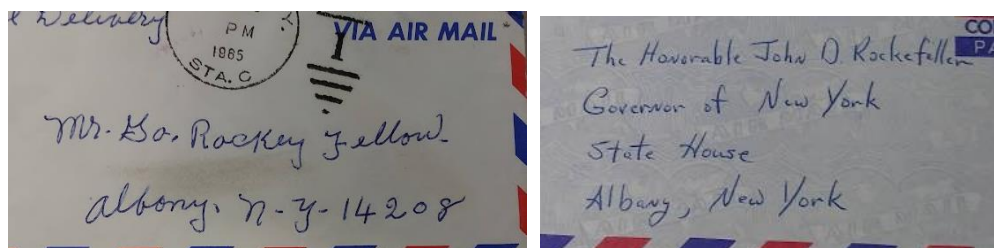 & Delivery
Y.
PM
1965
STA. C
VIA AIR MAIL
Mr. Go. Rockey Fellow.
albony. N-Y-14208
CO
PA
The Honorable John D. Rockefeller
Governor of New York
State House
Albany, New York